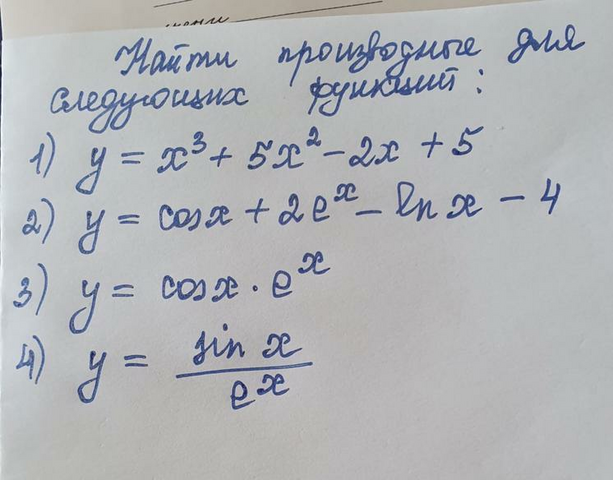 Найти производные для
следующих функций:
1) y = x³ + 5x² - 2x + 5
2) y = cos x + 2eˣ - ln x - 4
3) y = cos x · eˣ
4) y = sin x / eˣ